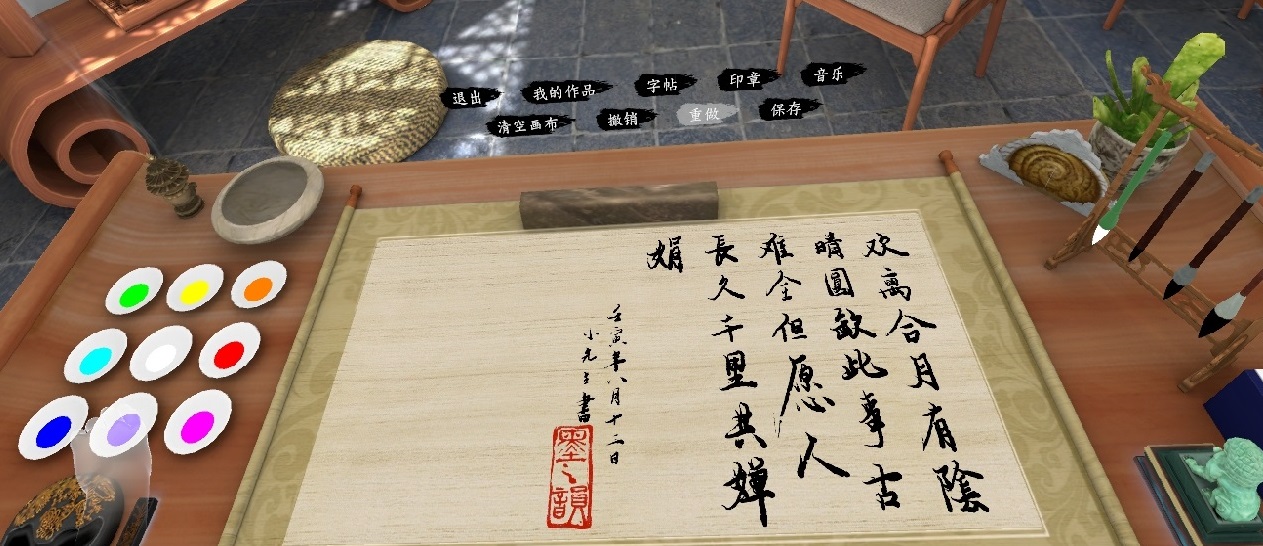 退出
我的作品
字帖
印章
音乐
清空画布
撤销
重做
保存
欢离合月有陰
晴圓缺此事古
难全但愿人
長久千里共嬋
娟
壬寅年八月十二日
小元子書
墨之韻